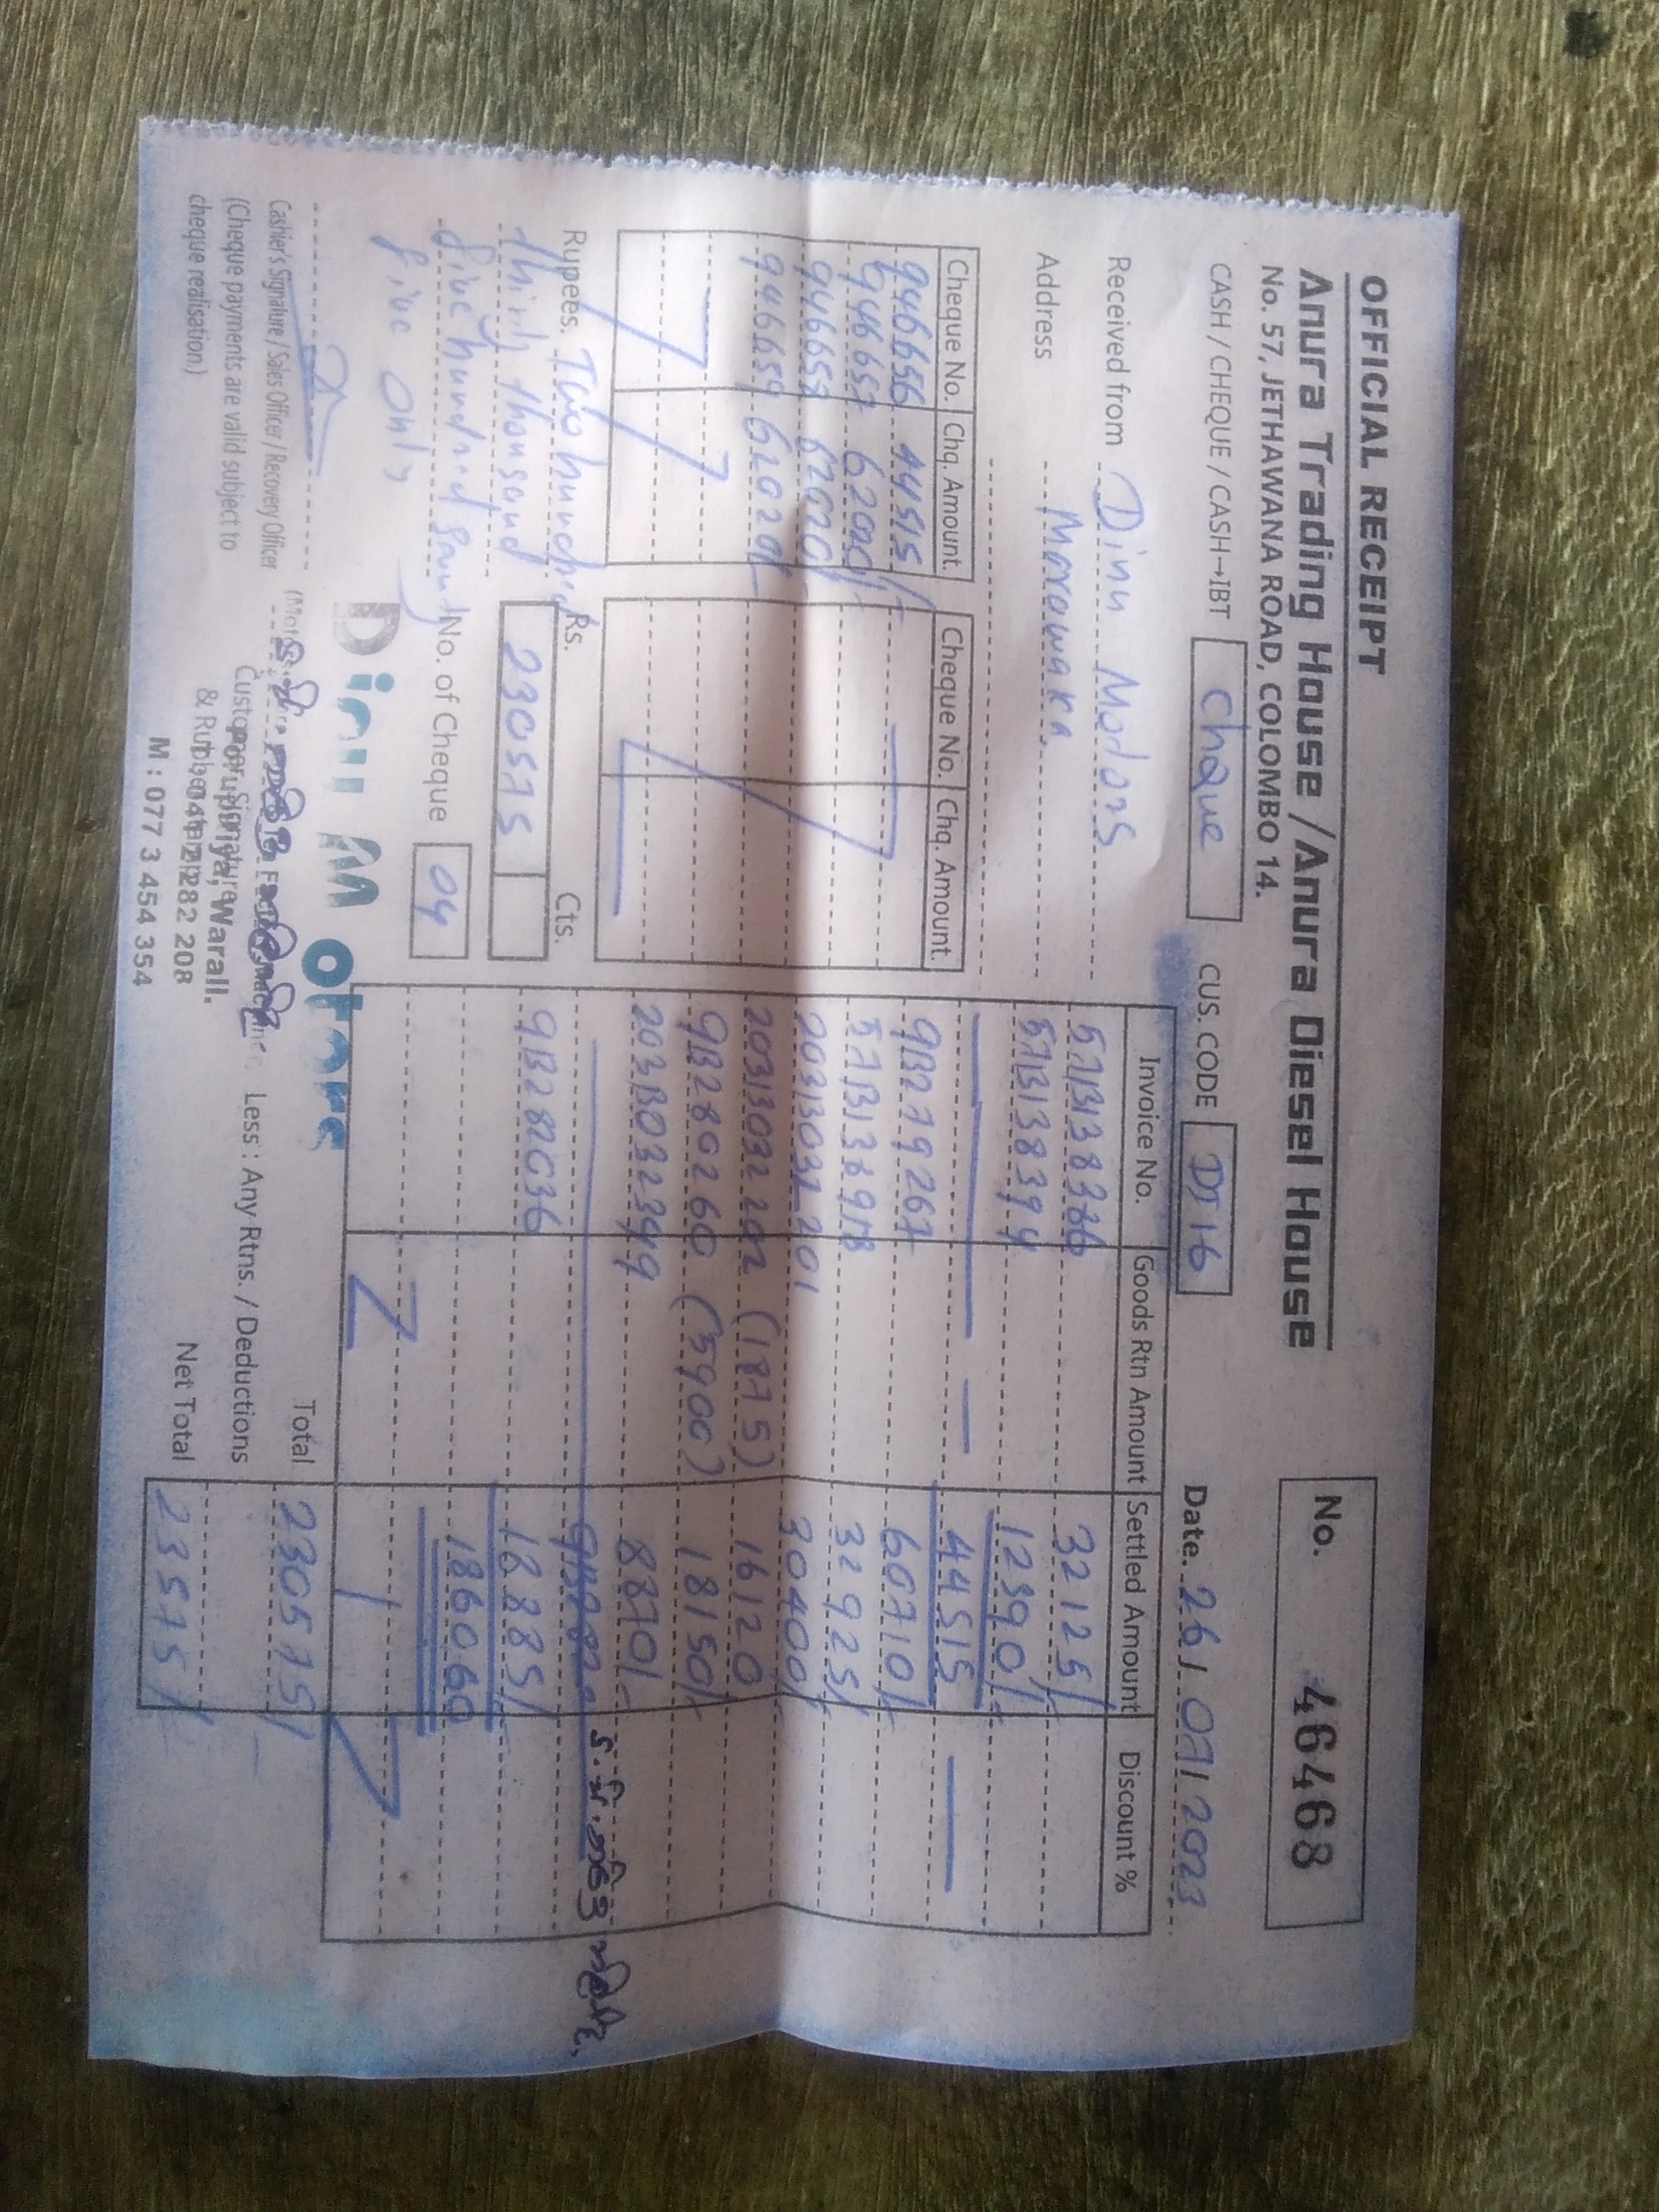 OFFICIAL RECEIPT
Anura Trading House / Anura Diesel House
No. 57, JETHAWANA ROAD, COLOMBO 14.
No. 46468
CASH / CHEQUE / CASH→IBT Cheque
CUS. CODE DJ16
Date. 26/07/2023
Received from Dinu Motors
Address Morawaka
Cheque No. Chq. Amount
946656 44515/-
946657 62020/-
946658 62020/-
946659 62020/-
Cheque No. Chq. Amount
Rupees. Two hundred
thirty thousand
five hundred seventy
five only
Rs. Cts.
230575
No. of Cheque 04
Invoice No. Goods Rtn Amount Settled Amount Discount %
57B138386 32125/-
57B138394 12390/-
44515
9B279267 60710/-
57B138978 32925/-
203B032201 30400/-
203B032202 (1875) 16120
9B280260 (5900) 18150/-
203B032349 8870/-
9B282036 18885/-
186060
Total 230575/-
Less : Any Rtns. / Deductions
Net Total 23575/-
Cashier's Signature / Sales Officer / Recovery Officer
(Cheque payments are valid subject to
cheque realisation.)
Dinu Motors
Customer Signature
& Rubber
Porupitiya, Warall.
041 2 282 208
M : 077 3 454 354